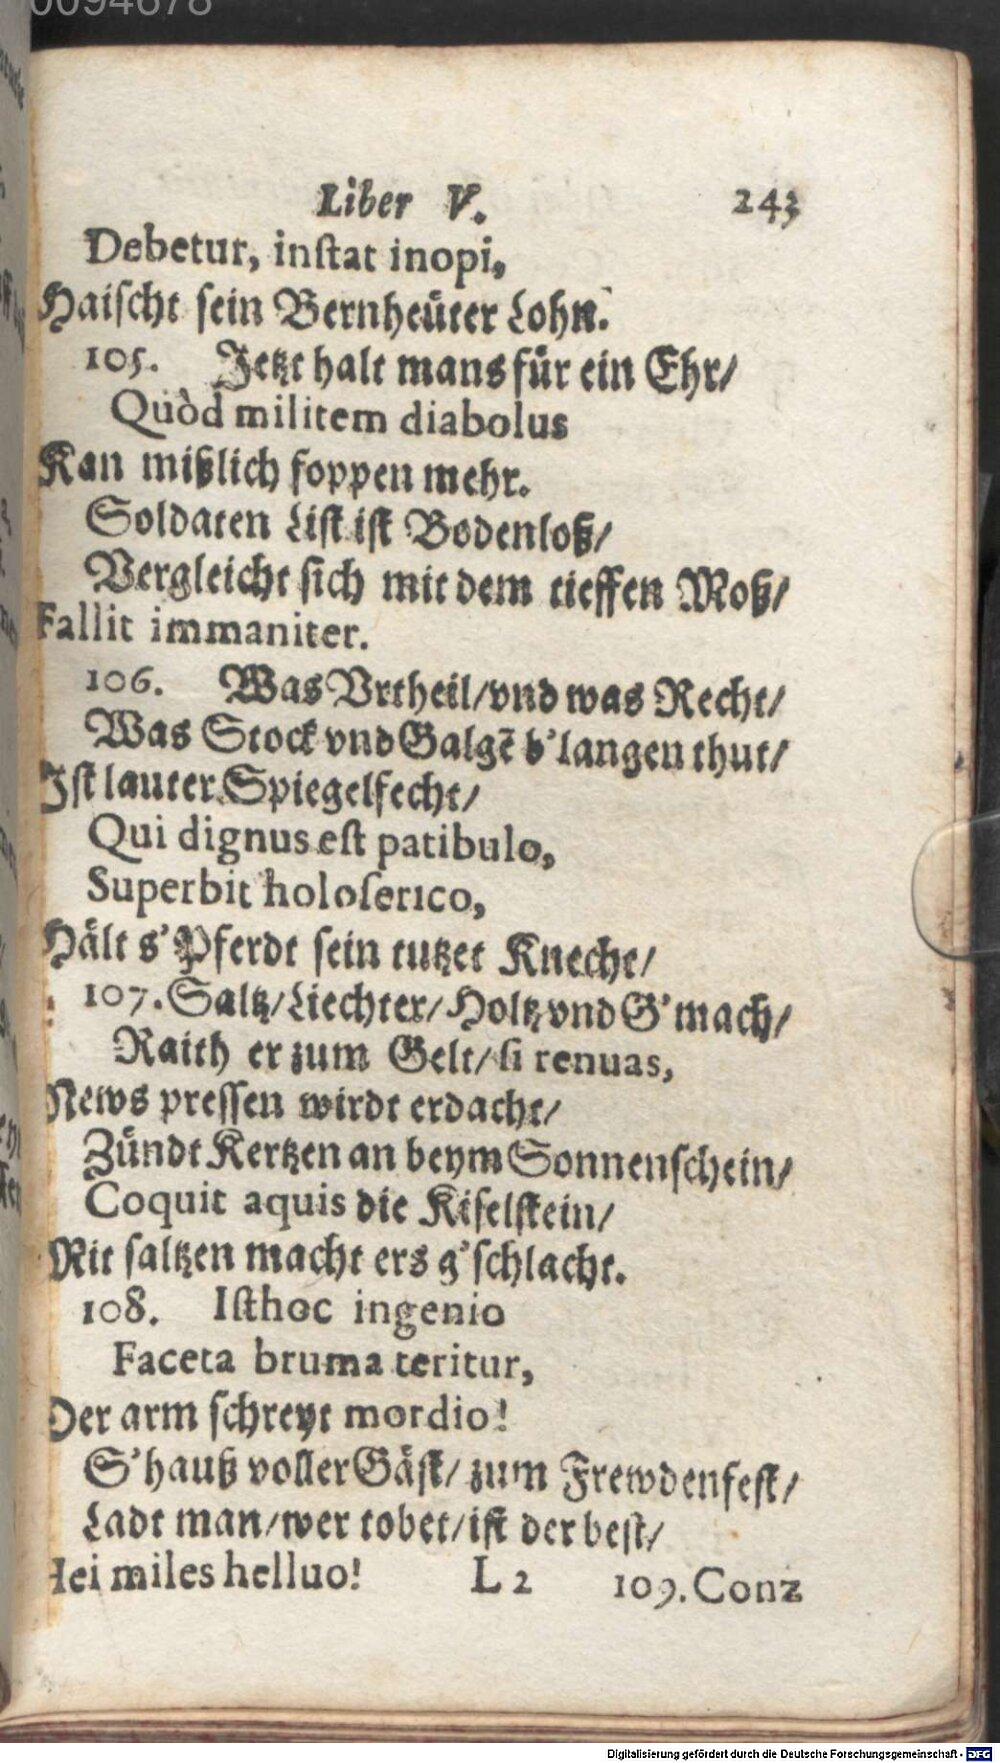 0094678
Liber V. 243
Debetur, inſtat inopi,
Haiſcht ſein Bernheüter Lohn.
105. Jetzt halt mans für ein Ehr/
Quòd militem diabolus
Kan mißlich foppen mehr.
Soldaten Liſt iſt Bodenloß/
Vergleicht ſich mit dem tieffen Moß/
Fallit immaniter.
106. Was Vrtheil/vnd was Recht/
Was Stock vnd Galgẽ b'langen thut/
Iſt lauter Spiegelfecht/
Qui dignus eſt patibulo,
Superbit holoſerico,
Hält s'Pferdt ſein tutzet Knecht/
107. Saltz/Liechter/Holtz vnd G'mach/
Raith er zum Gelt/ ſi renuas,
News preſſen wirdt erdacht/
Zündt Kertzen an beym Sonnenſchein/
Coquit aquis die Kiſelſtein/
Mit ſaltzen macht ers g'ſchlacht.
108. Iſthoc ingenio
Faceta bruma teritur,
Der arm ſchreyt mordio!
S'hauß voller Gäſt/ zum Frewdenfeſt/
Ladt man/wer tobet/iſt der beſt/
Hei miles helluo! L 2 109. Conz
Digitalisierung gefördert durch die Deutsche Forschungsgemeinschaft - DFG